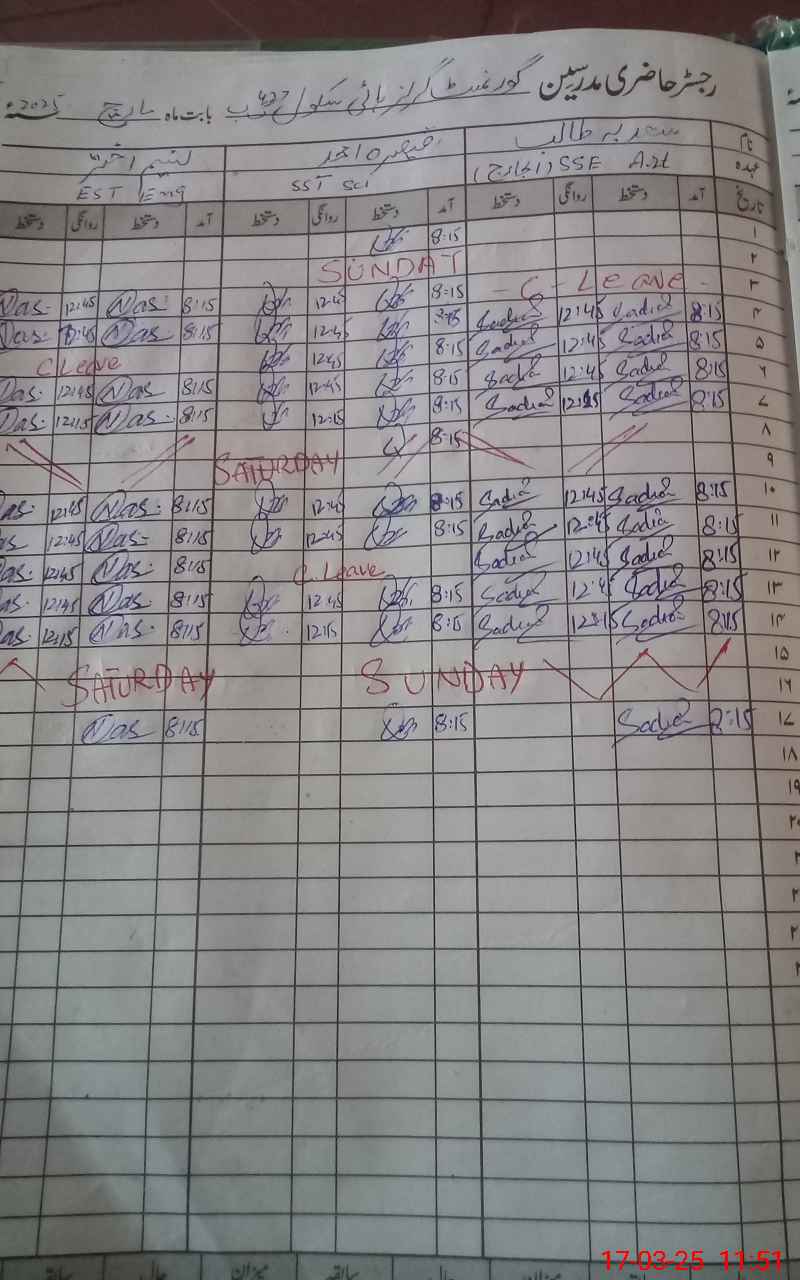 رجسٹر حاضری مدرسین گورنمنٹ گرلز ہائی سکول 427 ب بابت ماہ مارچ 2025ء
نام سعدیہ طالب قیصرہ احمد نسیم اختر
عہدہ SSE Art (انچارج) SST Sci EST Eng
تاریخ آمد دستخط روانگی دستخط آمد دستخط روانگی دستخط آمد دستخط روانگی دستخط
۱ 8:15
۲ SUNDAY
۳ - C - Leave - 8:15 12:45 8:15 Nas: 12:45 Nas:
۴ 8:15 Sadia 12:45 Sadia 8:15 12:45 8:15 Nas: 12:45 Nas:
۵ 8:15 Sadia 12:45 Sadia 8:15 12:45 C Leave
۶ 8:15 Sadia 12:45 Sadia 8:15 12:45 8:15 Nas 12:45 Nas:
۷ 8:15 Sadia 12:15 Sadia 8:15 12:15 8:15 Nas: 12:15 Nas:
۸ 8:15
۹ SATURDAY
۱۰ 8:15 Sadia 12:45 Sadia 8:15 12:45 8:15 Nas: 12:45 Nas:
۱۱ 8:15 Sadia 12:45 Sadia 8:15 12:45 8:15 Nas- 12:45
۱۲ 8:15 Sadia 12:45 Sadia C. Leave 8:15 Nas: 12:45
۱۳ 8:15 Sadia 12:45 Sadia 8:15 12:45 8:15 Nas: 12:45
۱۴ 8:15 Sadia 12:15 Sadia 8:15 12:15 8:15 Nas: 12:15
۱۵
۱۶ SUNDAY SATURDAY
۱۷ 8:15 Sadia 8:15 8:15 Nas
۱۸
۱۹
۲۰
میزان حال سابقہ میزان حال سابقہ
17-03-25 11:51